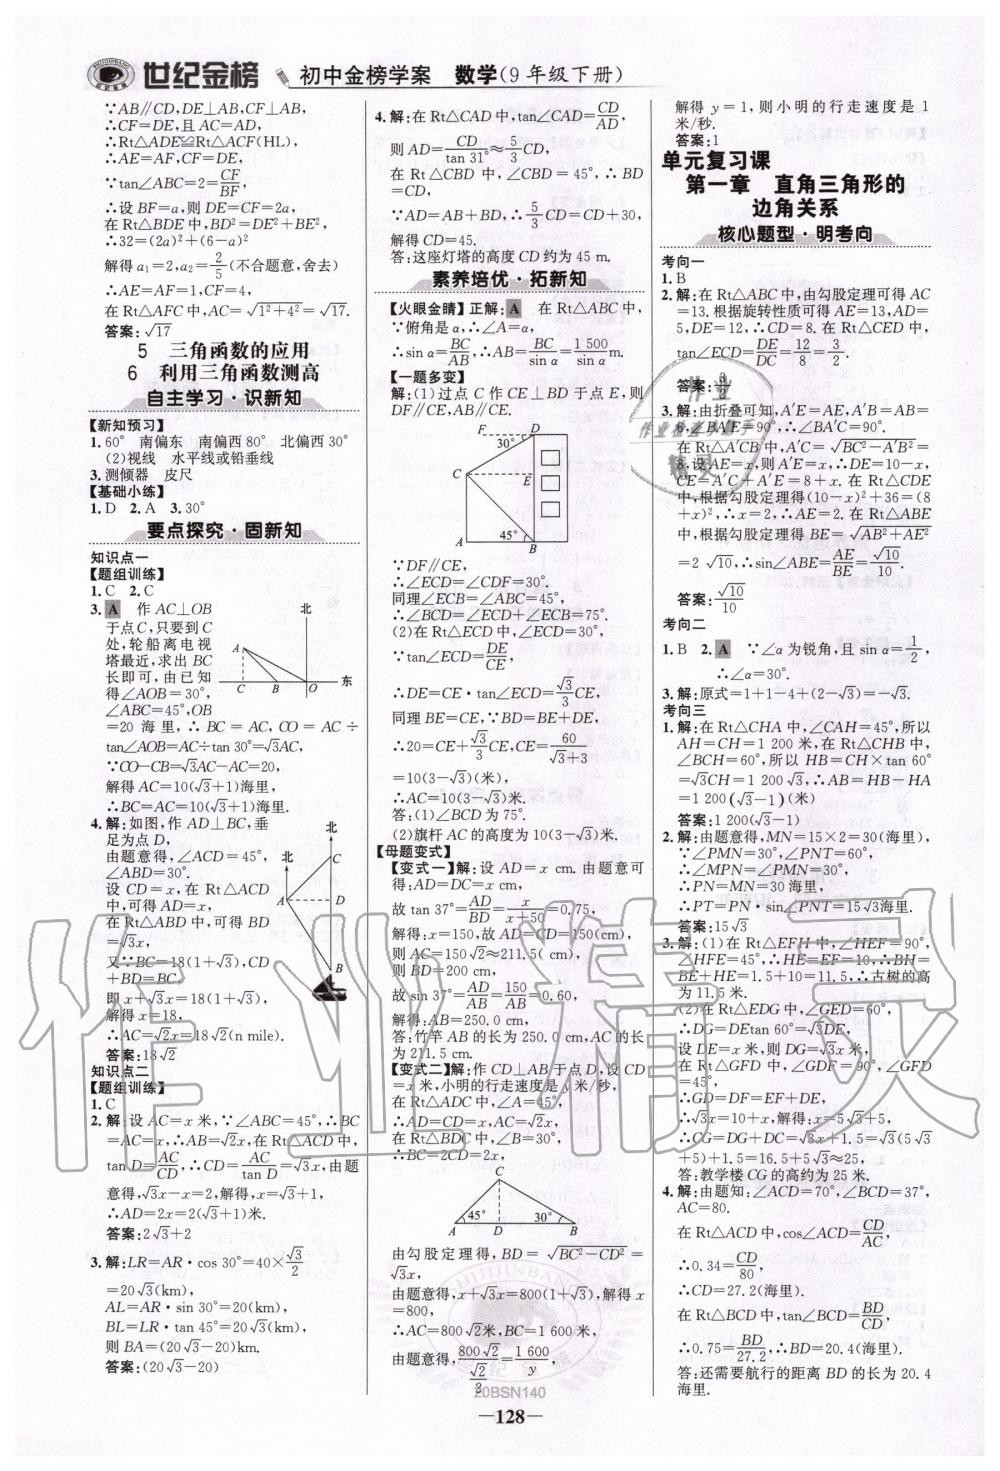 世纪金榜 初中金榜学案 数学(9年级下册)
∵AB∥CD,DE⊥AB,CF⊥AB,
∴CF=DE,且AC=AD,
∴Rt△ADE≌Rt△ACF(HL),
∴AE=AF,CF=DE,
∵tan∠ABC=2=CF/BF,
∴设BF=a,则DE=CF=2a,
在Rt△BDE中,BD²=DE²+BE²,
∴32=(2a)²+(6-a)²
解得a₁=2,a₂=2/5(不合题意,舍去)
∴AE=AF=1,CF=4,
在Rt△AFC中,AC=√(1²+4²)=√17.
答案:√17
5 三角函数的应用
6 利用三角函数测高
自主学习·识新知
【新知预习】
1.60° 南偏东 南偏西80° 北偏西30°
(2)视线 水平线或铅垂线
3.测倾器 皮尺
【基础小练】
1.D 2.A 3.30°
要点探究·固新知
知识点一
【题组训练】
1.C 2.C
3.A 作AC⊥OB
于点C,只要到C
处,轮船离电视
塔最近,求出BC
长即可,由已知
得∠AOB=30°,
∠ABC=45°,OB
=20海里,∴BC=AC,CO=AC÷
tan∠AOB=AC÷tan 30°=√3AC,
∵CO-CB=√3AC-AC=20,
解得AC=10(√3+1)海里,
∴BC=AC=10(√3+1)海里.
北
A
C B O 东
4.解:如图,作AD⊥BC,垂
足为点D,
由题意得,∠ACD=45°,
∠ABD=30°.
设CD=x,在Rt△ACD
中,可得AD=x,
在Rt△ABD中,可得BD
=√3x,
又∵BC=18(1+√3),CD
+BD=BC,
即x+√3x=18(1+√3),
解得x=18,
∴AC=√2x=18√2(n mile).
答案:18√2
北
北 C
A D
B
知识点二
【题组训练】
1.C
2.解:设AC=x米,∵∠ABC=45°,∴BC
=AC=x,∴AB=√2x,在Rt△ACD中,
tan D=AC/CD,∴CD=AC/tan D=√3x,由题
意得,√3x-x=2,解得,x=√3+1,
∴AD=2x=2(√3+1)米.
答案:2√3+2
3.解:LR=AR·cos 30°=40×√3/2
=20√3(km),
AL=AR·sin 30°=20(km),
BL=LR·tan 45°=20√3(km),
则BA=(20√3-20)km.
答案:(20√3-20)
4.解:在Rt△CAD中,tan∠CAD=CD/AD,
则AD=CD/tan 31°≈5/3CD,
在Rt△CBD中,∠CBD=45°,∴BD
=CD,
∵AD=AB+BD,∴5/3CD=CD+30,
解得CD=45.
答:这座灯塔的高度CD约为45 m.
素养培优·拓新知
【火眼金睛】正解:A 在Rt△ABC中,
∵俯角是α,∴∠A=α,
∴sin α=BC/AB,∴AB=BC/sin α=1 500/sin α m.
【一题多变】
解:(1)过点C作CE⊥BD于点E,则
DF∥CE,AB∥CE.
F D
30°
C E
45°
A B
∵DF∥CE,
∴∠ECD=∠CDF=30°.
同理∠ECB=∠ABC=45°,
∴∠BCD=∠ECD+∠ECB=75°.
(2)在Rt△ECD中,∠ECD=30°,
∵tan∠ECD=DE/CE,
∴DE=CE·tan∠ECD=√3/3CE,
同理BE=CE,∵BD=BE+DE,
∴20=CE+√3/3CE,CE=60/(√3+3)
=10(3-√3)(米),
∴AC=10(3-√3)米.
答:(1)∠BCD为75°.
(2)旗杆AC的高度为10(3-√3)米.
【母题变式】
【变式一】解:设AD=x cm.由题意可
得:AD=DC=x cm,
故tan 37°=AD/BD=x/(x+50)=0.75,
解得:x=150,故AD=CD=150(cm)
则AC=150√2≈211.5(cm),
则BD=200 cm,
故sin 37°=AD/AB=150/AB=0.60,
解得:AB=250.0 cm,
答:竹竿AB的长为250.0 cm,AC的长
为211.5 cm.
【变式二】解:作CD⊥AB于点D,设CD
=x米,小明的行走速度是y米/秒,
在Rt△ADC中,∠A=45°,
∴AD=CD=x,AC=√2x.
在Rt△BDC中,∠B=30°,
∴BC=2CD=2x,
C
45° 30°
A D B
由勾股定理得,BD=√(BC²-CD²)=
√3x,
由题意得,x+√3x=800(1+√3),解得x
=800,
∴AC=800√2米,BC=1 600米,
由题意得,800√2/(√2/2)=1 600/y,
解得y=1,则小明的行走速度是1
米/秒.
答案:1
单元复习课
第一章 直角三角形的
边角关系
核心题型·明考向
考向一
1.B
2.解:在Rt△ABC中,由勾股定理可得AC
=13.根据旋转性质可得AE=13,AD=
5,DE=12,∴CD=8.在Rt△CED中,
tan∠ECD=DE/DC=12/8=3/2.
答案:3/2
3.解:由折叠可知,A′E=AE,A′B=AB=
6,∠BA′E=90°,∴∠BA′C=90°.
在Rt△A′CB中,A′C=√(BC²-A′B²)=
8,设AE=x,则A′E=x,∴DE=10-x,
CE=A′C+A′E=8+x.在Rt△CDE
中,根据勾股定理得(10-x)²+36=(8
+x)²,∴x=2,∴AE=2.在Rt△ABE
中,根据勾股定理得BE=√(AB²+AE²)
=2√10,∴sin∠ABE=AE/BE=√10/10.
答案:√10/10
考向二
1.B 2.A ∵∠α为锐角,且sin α=1/2,
∴∠α=30°.
3.解:原式=1+1-4+(2-√3)=-√3.
考向三
1.解:在Rt△CHA中,∠CAH=45°,所以
AH=CH=1 200米,在Rt△CHB中,
∠BCH=60°,所以HB=CH×tan 60°
=√3CH=1 200√3,∴AB=HB-HA
=1 200(√3-1)(米)
答案:1 200(√3-1)
2.解:由题意得,MN=15×2=30(海里),
∵∠PMN=30°,∠PNT=60°,
∴∠MPN=∠PMN=30°,
∴PN=MN=30海里,
∴PT=PN·sin∠PNT=15√3海里.
答案:15√3
3.解:(1)在Rt△EFH中,∠HEF=90°,
∠HFE=45°,∴HE=EF=10,∴BH=
BE+HE=1.5+10=11.5,∴古树的高
为11.5米.
(2)在Rt△EDG中,∠GED=60°,
∴DG=DEtan 60°=√3DE,
设DE=x米,则DG=√3x米,
在Rt△GFD中,∠GDF=90°,∠GFD
=45°,
∴GD=DF=EF+DE,
∴√3x=10+x,解得:x=5√3+5,
∴CG=DG+DC=√3x+1.5=√3(5√3
+5)+1.5=16.5+5√3≈25.
答:教学楼CG的高约为25米.
4.解:由题知:∠ACD=70°,∠BCD=37°,
AC=80.
在Rt△ACD中,cos∠ACD=CD/AC,
∴0.34=CD/80,
∴CD=27.2(海里).
在Rt△BCD中,tan∠BCD=BD/CD,
∴0.75=BD/27.2,∴BD=20.4(海里).
答:还需要航行的距离BD的长为20.4
海里.
20BSN140
—128—
作业精灵
作业
作业检查小助手
精灵
SHIJIJINBANG